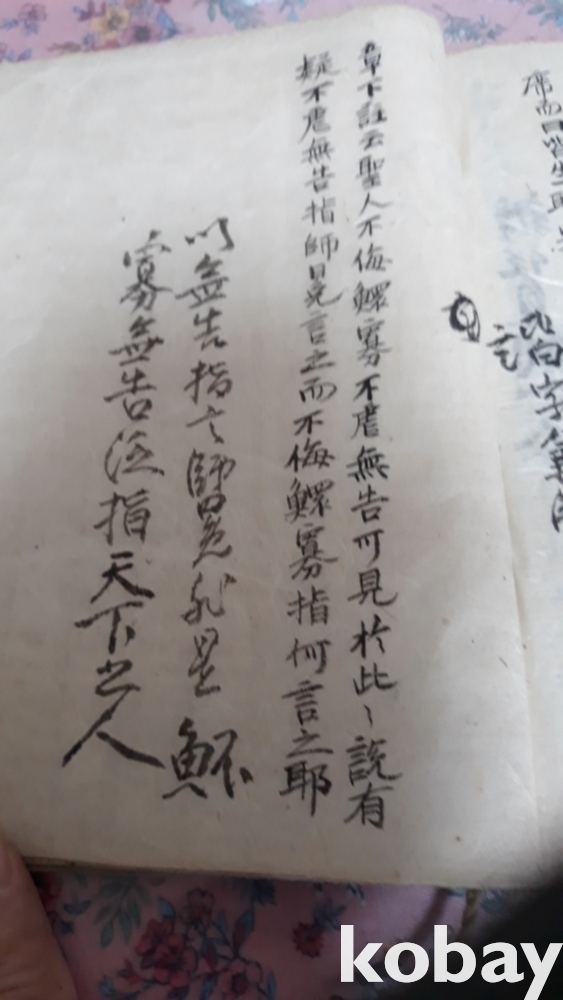 席而曰皆坐
皆字
章下註云聖人不侮鰥寡不虐無告可見於此〻說有
疑不虐無告指師冕言之而不侮鰥寡指何言之耶
以無告指言師冕能是鰥
寡無告泛指天下之人
kobay